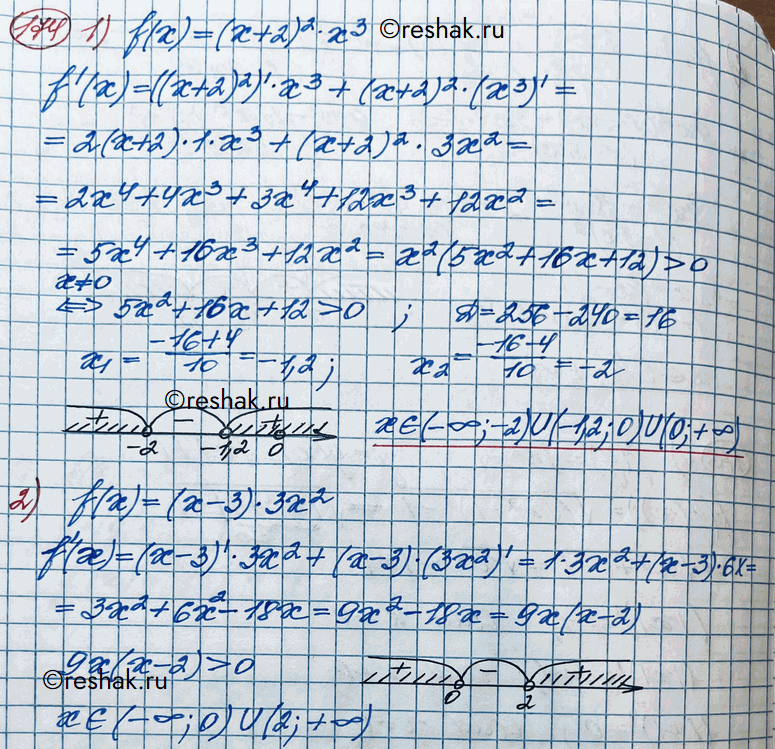 174 1) f(x)=(x+2)²·x³ ©reshak.ru
f'(x)=((x+2)²)'·x³+(x+2)²·(x³)'=
=2(x+2)·1·x³+(x+2)²·3x²=
=2x⁴+4x³+3x⁴+12x³+12x²=
=5x⁴+16x³+12x²=x²(5x²+16x+12)>0
x≠0
⇔ 5x²+16x+12>0 ; D=256-240=16
x₁=(-16+4)/10=-1,2; x₂=(-16-4)/10=-2
©reshak.ru
+ - +
-2 -1,2 0
x∈(-∞;-2)U(-1,2;0)U(0;+∞)
2) f(x)=(x-3)·3x²
f'(x)=(x-3)'·3x²+(x-3)·(3x²)'=1·3x²+(x-3)·6x=
=3x²+6x²-18x=9x²-18x=9x(x-2)
9x(x-2)>0
+ - +
0 2
©reshak.ru
x∈(-∞;0)U(2;+∞)